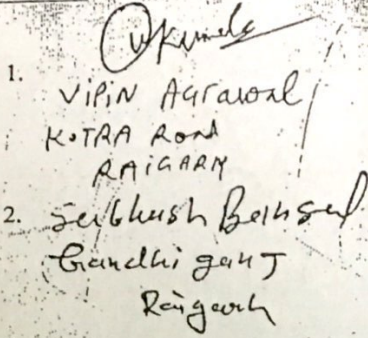 1.
VIPIN Agrawal
KOTRA ROAD
RAIGARH
2. Subhash Bansal
Gandhi ganj
Raigarh